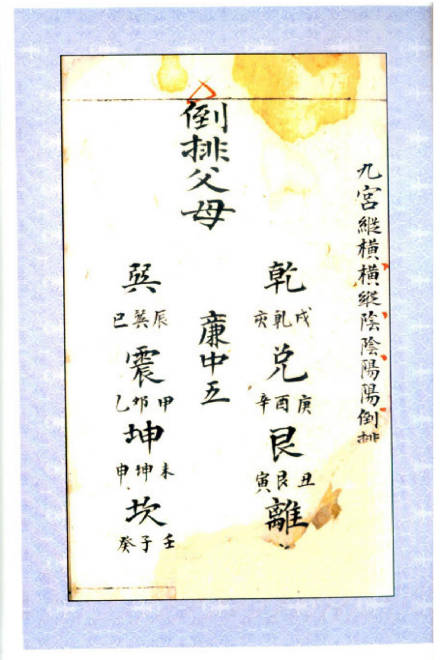 九宮縱橫橫縱陰陰陽陽倒排
倒排父母
乾
戌乾亥
兌
庚酉辛
艮
丑艮寅
離
廉中五
巽
辰巽巳
震
甲卯乙
坤
未坤申
坎
壬子癸